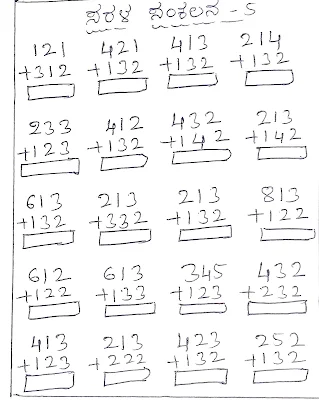 ಸರಳ ಸಂಕಲನ - 5
121 421 413 214
+312 +132 +132 +132
233 412 432 213
+123 +132 +142 +142
613 213 213 813
+132 +332 +132 +122
612 613 345 432
+122 +133 +123 +232
413 213 423 252
+123 +222 +132 +132